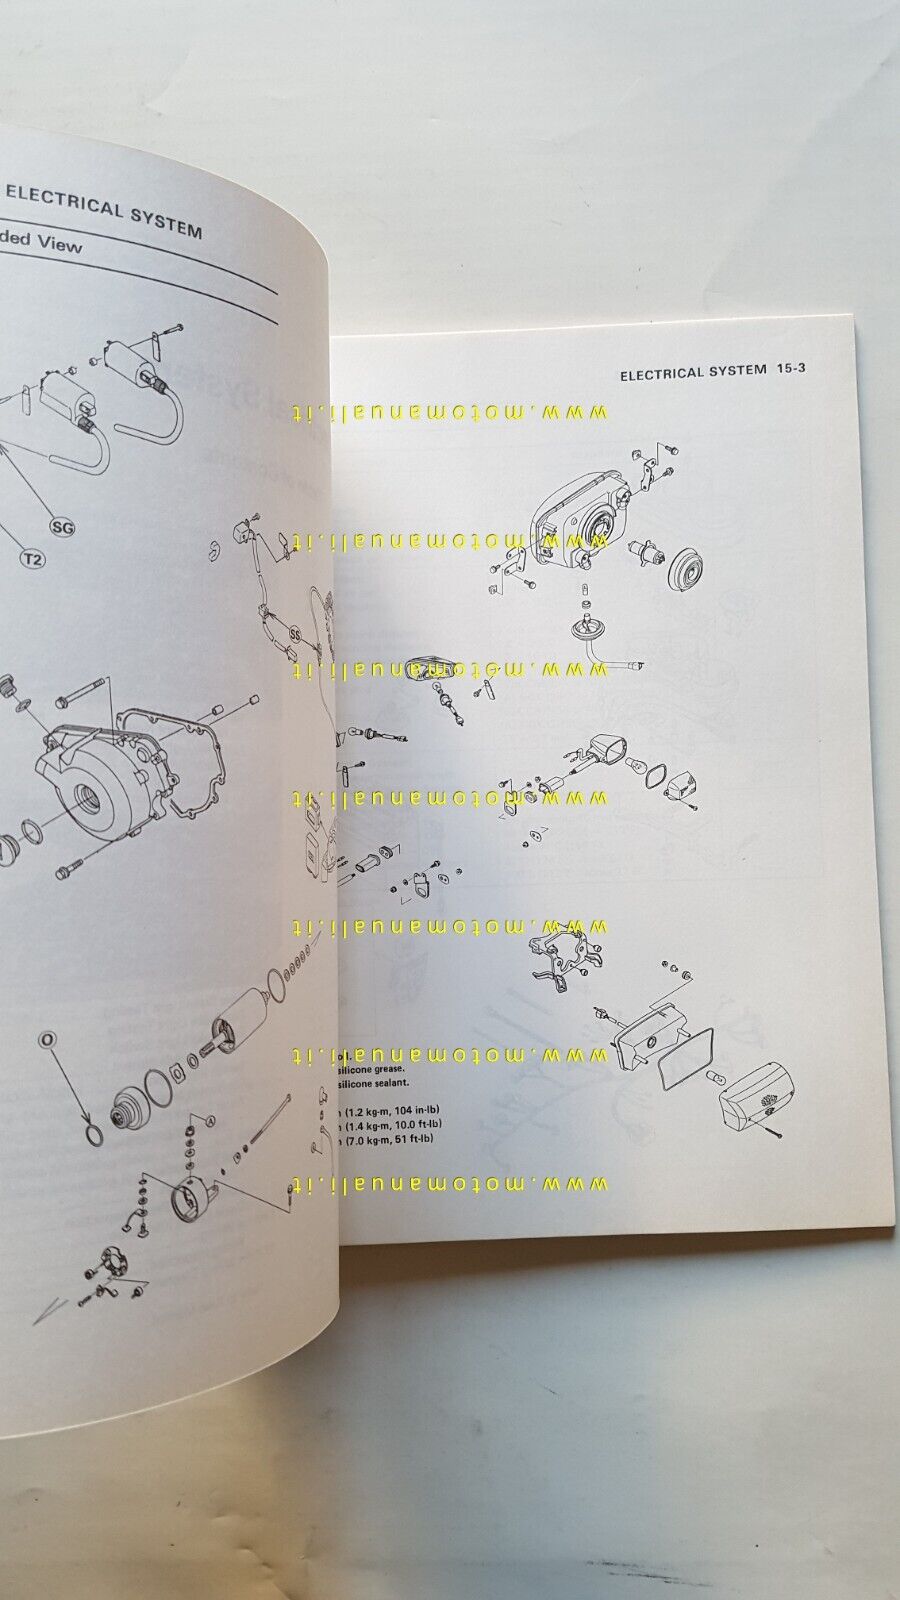 ELECTRICAL SYSTEM
ded View
SG
T2
SS
O
A
ELECTRICAL SYSTEM 15-3
www.motomanuali.it
www.motomanuali.it
www.motomanuali.it
www.motomanuali.it
www.motomanuali.it
www.motomanuali.it
www.motomanuali.it
silicone grease.
silicone sealant.
(1.2 kg-m, 104 in-lb)
(1.4 kg-m, 10.0 ft-lb)
(7.0 kg-m, 51 ft-lb)